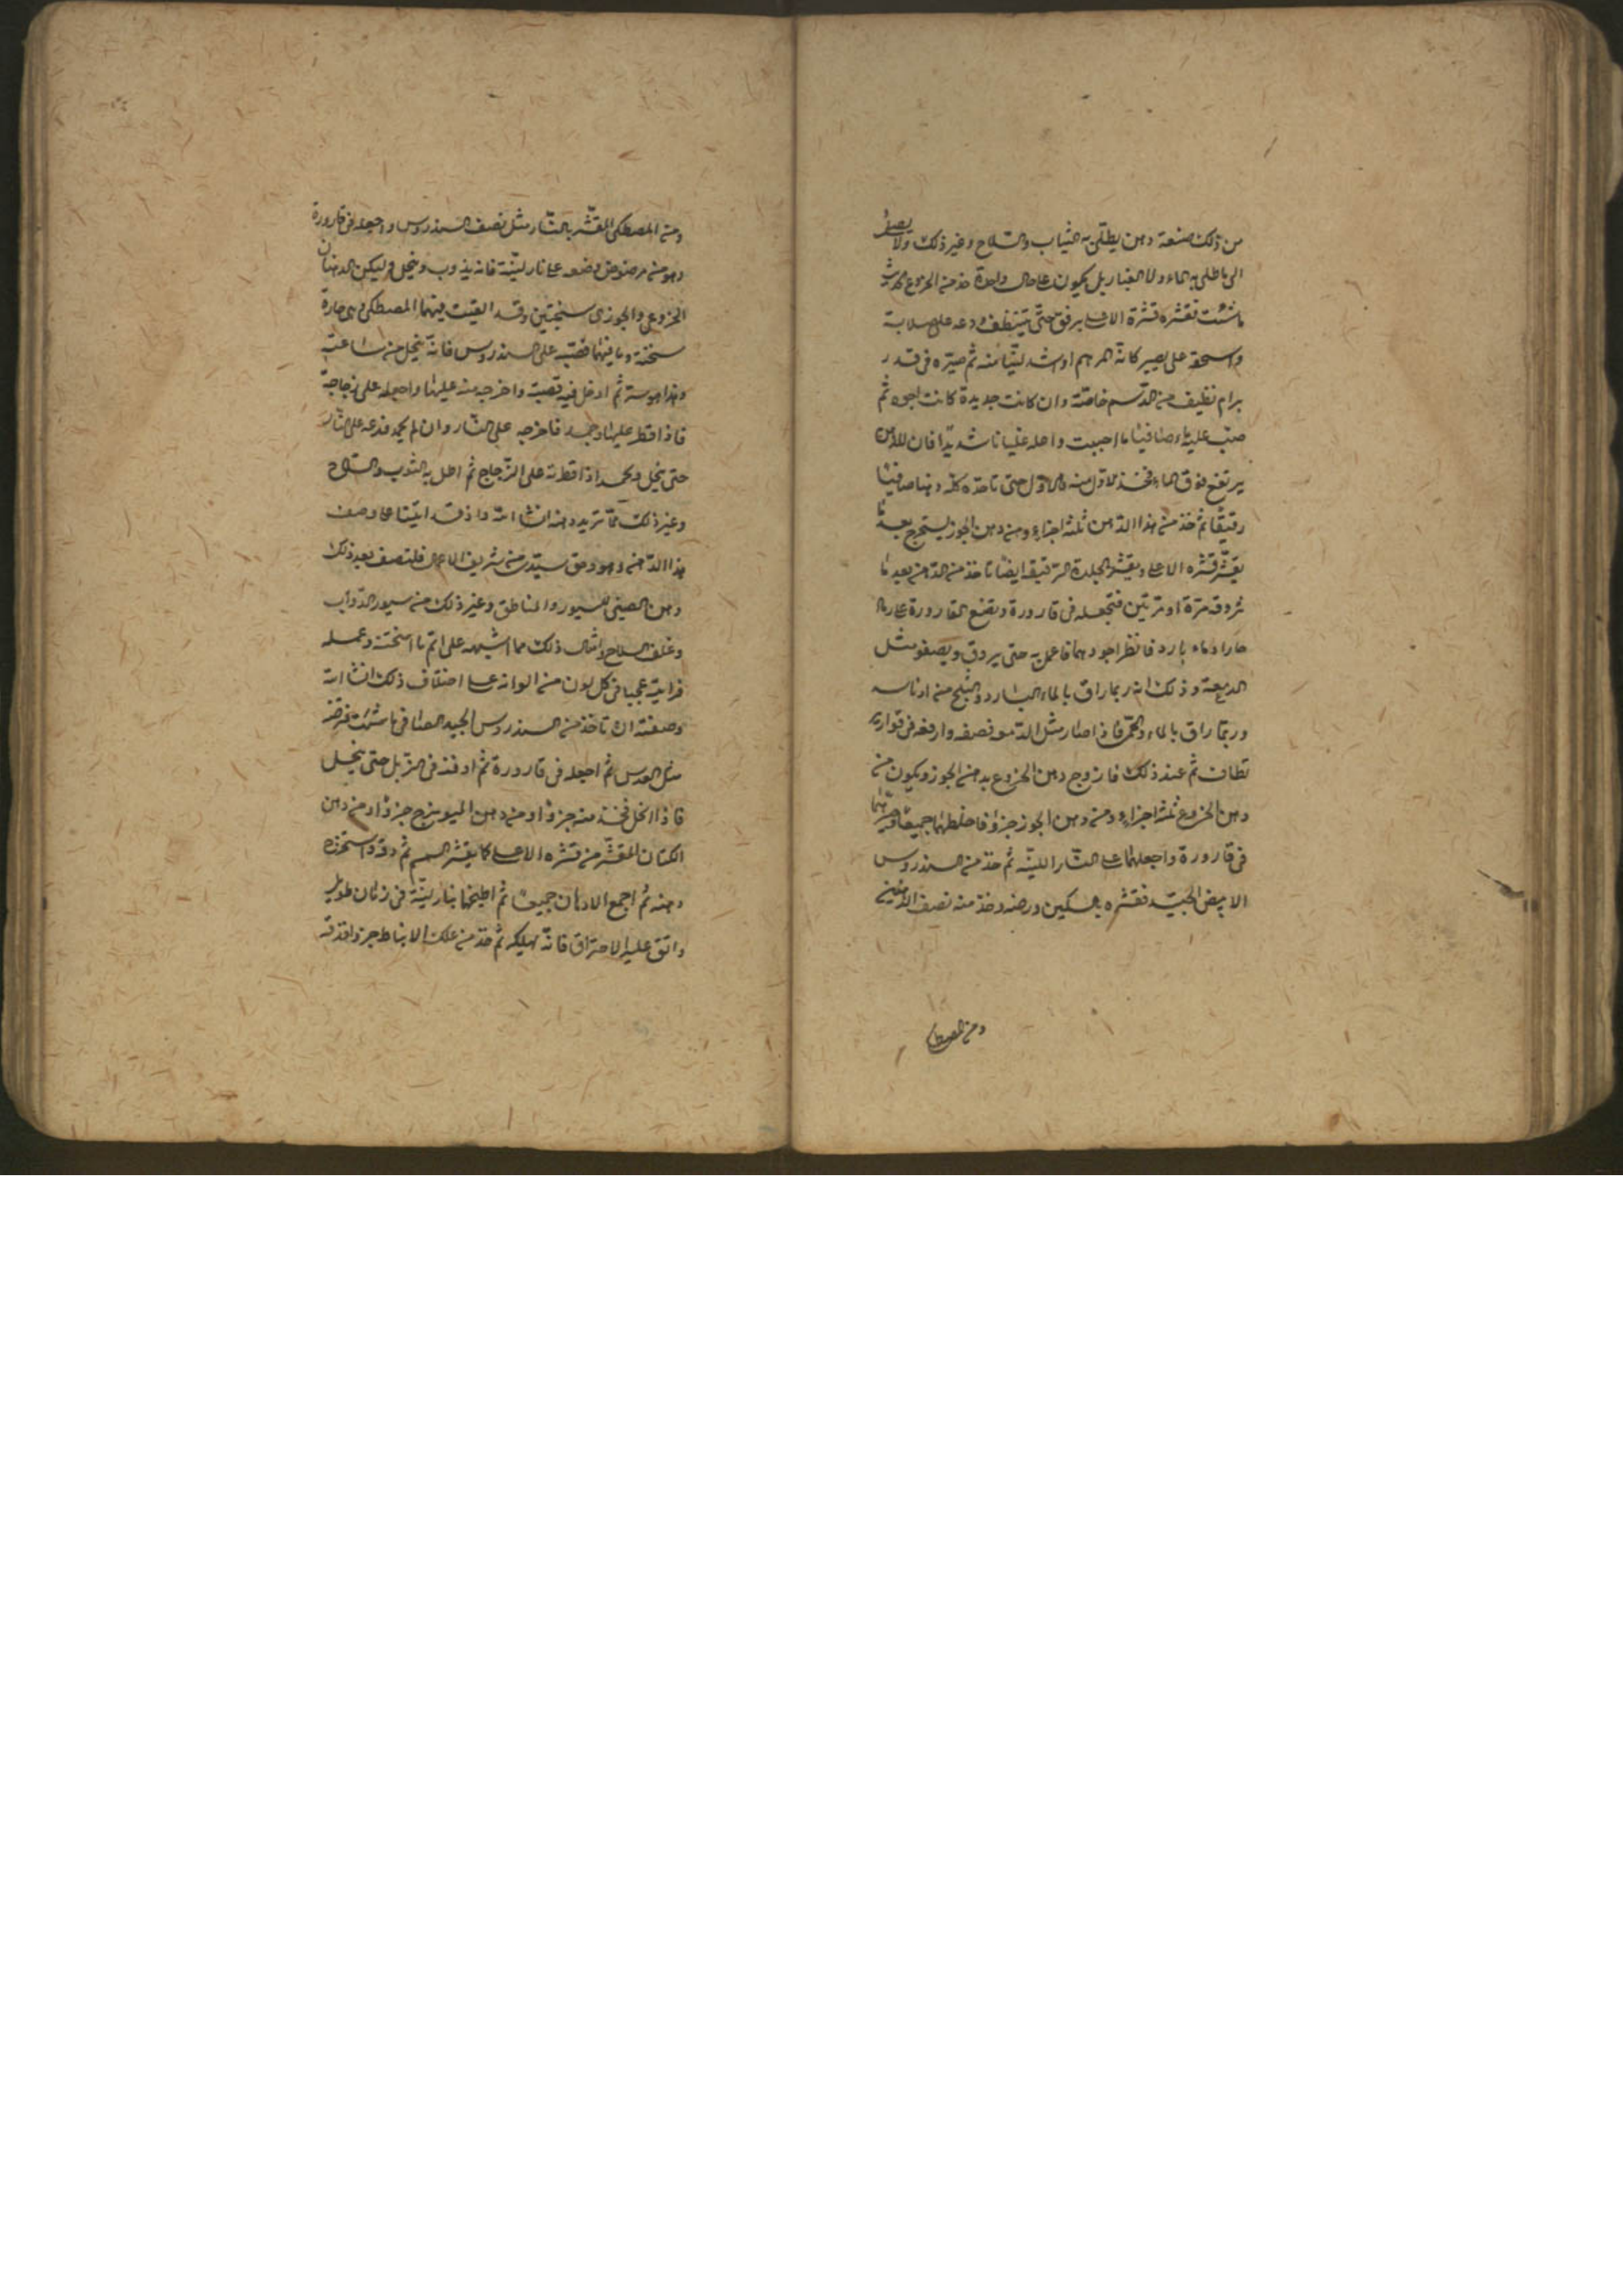 من ذلك صنعة دهن يطلى به الثياب والسلاح وغير ذلك ولا يصل
الى ما طلى به الماء ولا الغبار بل يكون على حال واحدة خذ من الخروع
ما شئت فقشره قشرة الاعلى برفق حتى يتنظف ودعه على صلابة
واسحقه حتى يصير كانه المرهم او اشد لينا منه ثم صيره فى قدر
برام نظيف من الدسم خاصة وان كانت جديدة كانت اجود ثم
صب عليه ماء صافيا ما احببت واغله غليانا شديدا فان الدهن
يرتفع فوق الماء فخذ الاول منه فالاول حتى تاخذه كله دهنا صافيا
رقيقا ثم خذ من هذا الدهن ثلثة اجزاء ومن دهن الجوز يستخرج بعد ما
يقشر قشره الاعلى ويقشر الجلدة الرقيقة ايضا تاخذ من الدهن بعد ما
تروقه مرة او مرتين فتجعله فى قارورة وتضع القارورة على ماء
حار او ماء بارد فانظر اجودهما فاعمل به حتى يروق ويصفو مثل
الدمعة وذلك انه ربما راق بالماء البارد والثلج من ادناسه
وربما راق بالماء والحر فاذا صار مثل الدمعة فصفه وارفعه فى قوارير
نظاف ثم عند ذلك فازوج دهن الخروع بدهن الجوز ويكون من
دهن الخروع ثلثة اجزاء ومن دهن الجوز جزؤ فاخلطهما جميعا وصيرهما
فى قارورة واجعلهما على النار اللينة ثم خذ من السندروس
الابيض الجيد فقشره بالسكين ورضه وخذ منه نصف الدهنين
ومن المصطكى
ومن المصطكى المقشر بالنار مثل نصف السندروس واجعله فى قارورة
وهو من مرضوض وضعه على نار لينة فانه يذوب وينحل وليكن الدهنان
الخروعى والجوزى سخنتين وقد القيت فيهما المصطكى وهى حارة
سخنة وما فيهما فصبه على السندروس فانه ينحل من ساعته
وهذا هو سته ثم ادخل فيه قصبة واخرجه منه عليها واجعله على زجاجة
فاذا قطر عليها وجمد فاخرجه على النار وان لم يجمد فدعه على النار
حتى ينحل ويجمد اذا قطرته على الزجاج ثم اطل به الثوب والسلاح
وغير ذلك مما تريد دهنه انشا الله واذ قد اتينا على وصف
هذا الدهن وهو وحق سيدى من شريف الاعمال فلنصف بعد ذلك
دهن الصينى للسيور والمناطق وغير ذلك من سيور الدواب
وغلف السلاح وامثال ذلك مما اشبهه على اتم ما امتحنته وعمله
فرايته عجبا فى كل لون من الوانه على اختلاف ذلك انشا الله
وصفته ان تاخذ من السندروس الجيد الصافى ما شئت فرضه
مثل العدس ثم اجعله فى قارورة ثم ادفنه فى الزبل حتى ينحل
فاذا انحل فخذ منه جزؤا ومن دهن الميويزج جزؤا ومن دهن
الكتان المقشر من قشره الاعلى كما يقشر السمسم ثم دقه واستخرج
دهنه ثم اجمع الادهان جميعا ثم اطبخها بنار لينة فى زمان طويل
واتق عليه الاحتراق فانه يهلكه ثم خذ من علك الانباط جزؤا فدقه